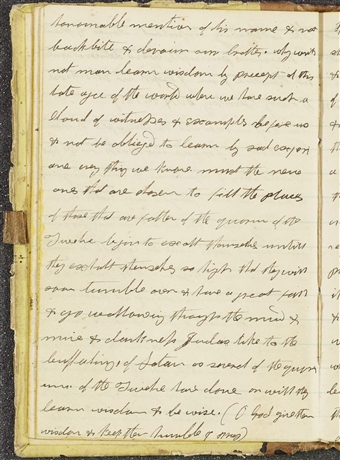 honourable mention of his name & not
backbite & devour our brother. why will
not man learn wisdom by precept at this
late age of the world when we have such a
cloud of witnesses & examples before us
& not be obliged to learn by sad exper
ance evry thing we know. must the new
ones that are chosen to fill the places
of those that are fallen of the quorum of the
Twelve begin to exalt themselves untill
they exhalt themselves so high that they will
soon tumble over & have a great fall
& go wallowing through the mud &
mire & darkness Judas like to the
buffatings of Satan as several of the quor
um of the Twelve have done or will they
learn wisdom & be wise. (O God give them
wisdom & keep them humble I pray)